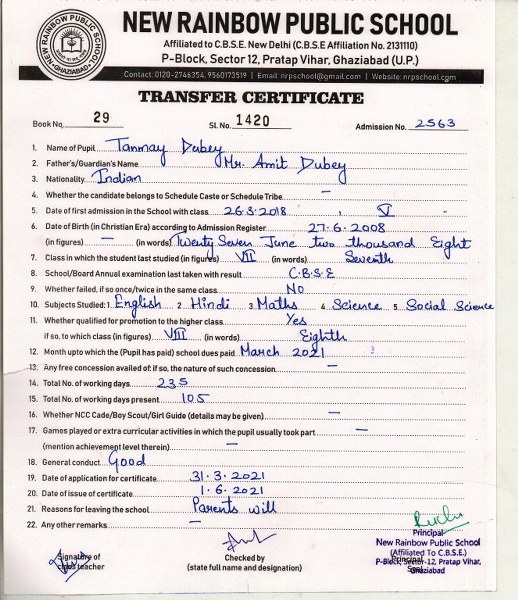 NEW RAINBOW PUBLIC SCHOOL
GHAZIABAD
NEW RAINBOW PUBLIC SCHOOL
Affiliated to C.B.S.E. New Delhi (C.B.S.E Affiliation No. 2131110)
P-Block, Sector 12, Pratap Vihar, Ghaziabad (U.P.)
Contact: 0120-2746354, 9560173519 | Email: nrpschool@gmail.com | Website: nrpschool.com
TRANSFER CERTIFICATE
Book No. 29 SL No. 1420 Admission No. 2563
1. Name of Pupil Tanmay Dubey
2. Father's/Guardian's Name Mr. Amit Dubey
3. Nationality Indian
4. Whether the candidate belongs to Schedule Caste or Schedule Tribe —
5. Date of first admission in the School with class 26.3.2018, V
6. Date of Birth (in Christian Era) according to Admission Register 27.6.2008
(in figures) — (in words) Twenty Seven June two thousand Eight
7. Class in which the student last studied (in figures) VII (in words) Seventh
8. School/Board Annual examination last taken with result C.B.S.E
9. Whether failed, if so once/twice in the same class No
10. Subjects Studied: 1. English 2. Hindi 3. Maths 4. Science 5. Social Science
11. Whether qualified for promotion to the higher class Yes
if so, to which class (in figures) VIII (in words) Eighth
12. Month upto which the (Pupil has paid) school dues paid March 2021
13. Any free concession availed of: if so, the nature of such concession. —
14. Total No. of working days 235
15. Total No. of working days present 105
16. Whether NCC Cade/Boy Scout/Girl Guide (details may be given) —
17. Games played or extra curricular activities in which the pupil usually took part —
(mention achievement level therein) —
18. General conduct Good
19. Date of application for certificate 31.3.2021
20. Date of issue of certificate 1.6.2021
21. Reasons for leaving the school Parents will
22. Any other remarks —
Signature of
class teacher
Checked by
(state full name and designation)
Principal
New Rainbow Public School
(Affiliated To C.B.S.E.)
P-Block, Sector-12, Pratap Vihar,
Ghaziabad
Principal